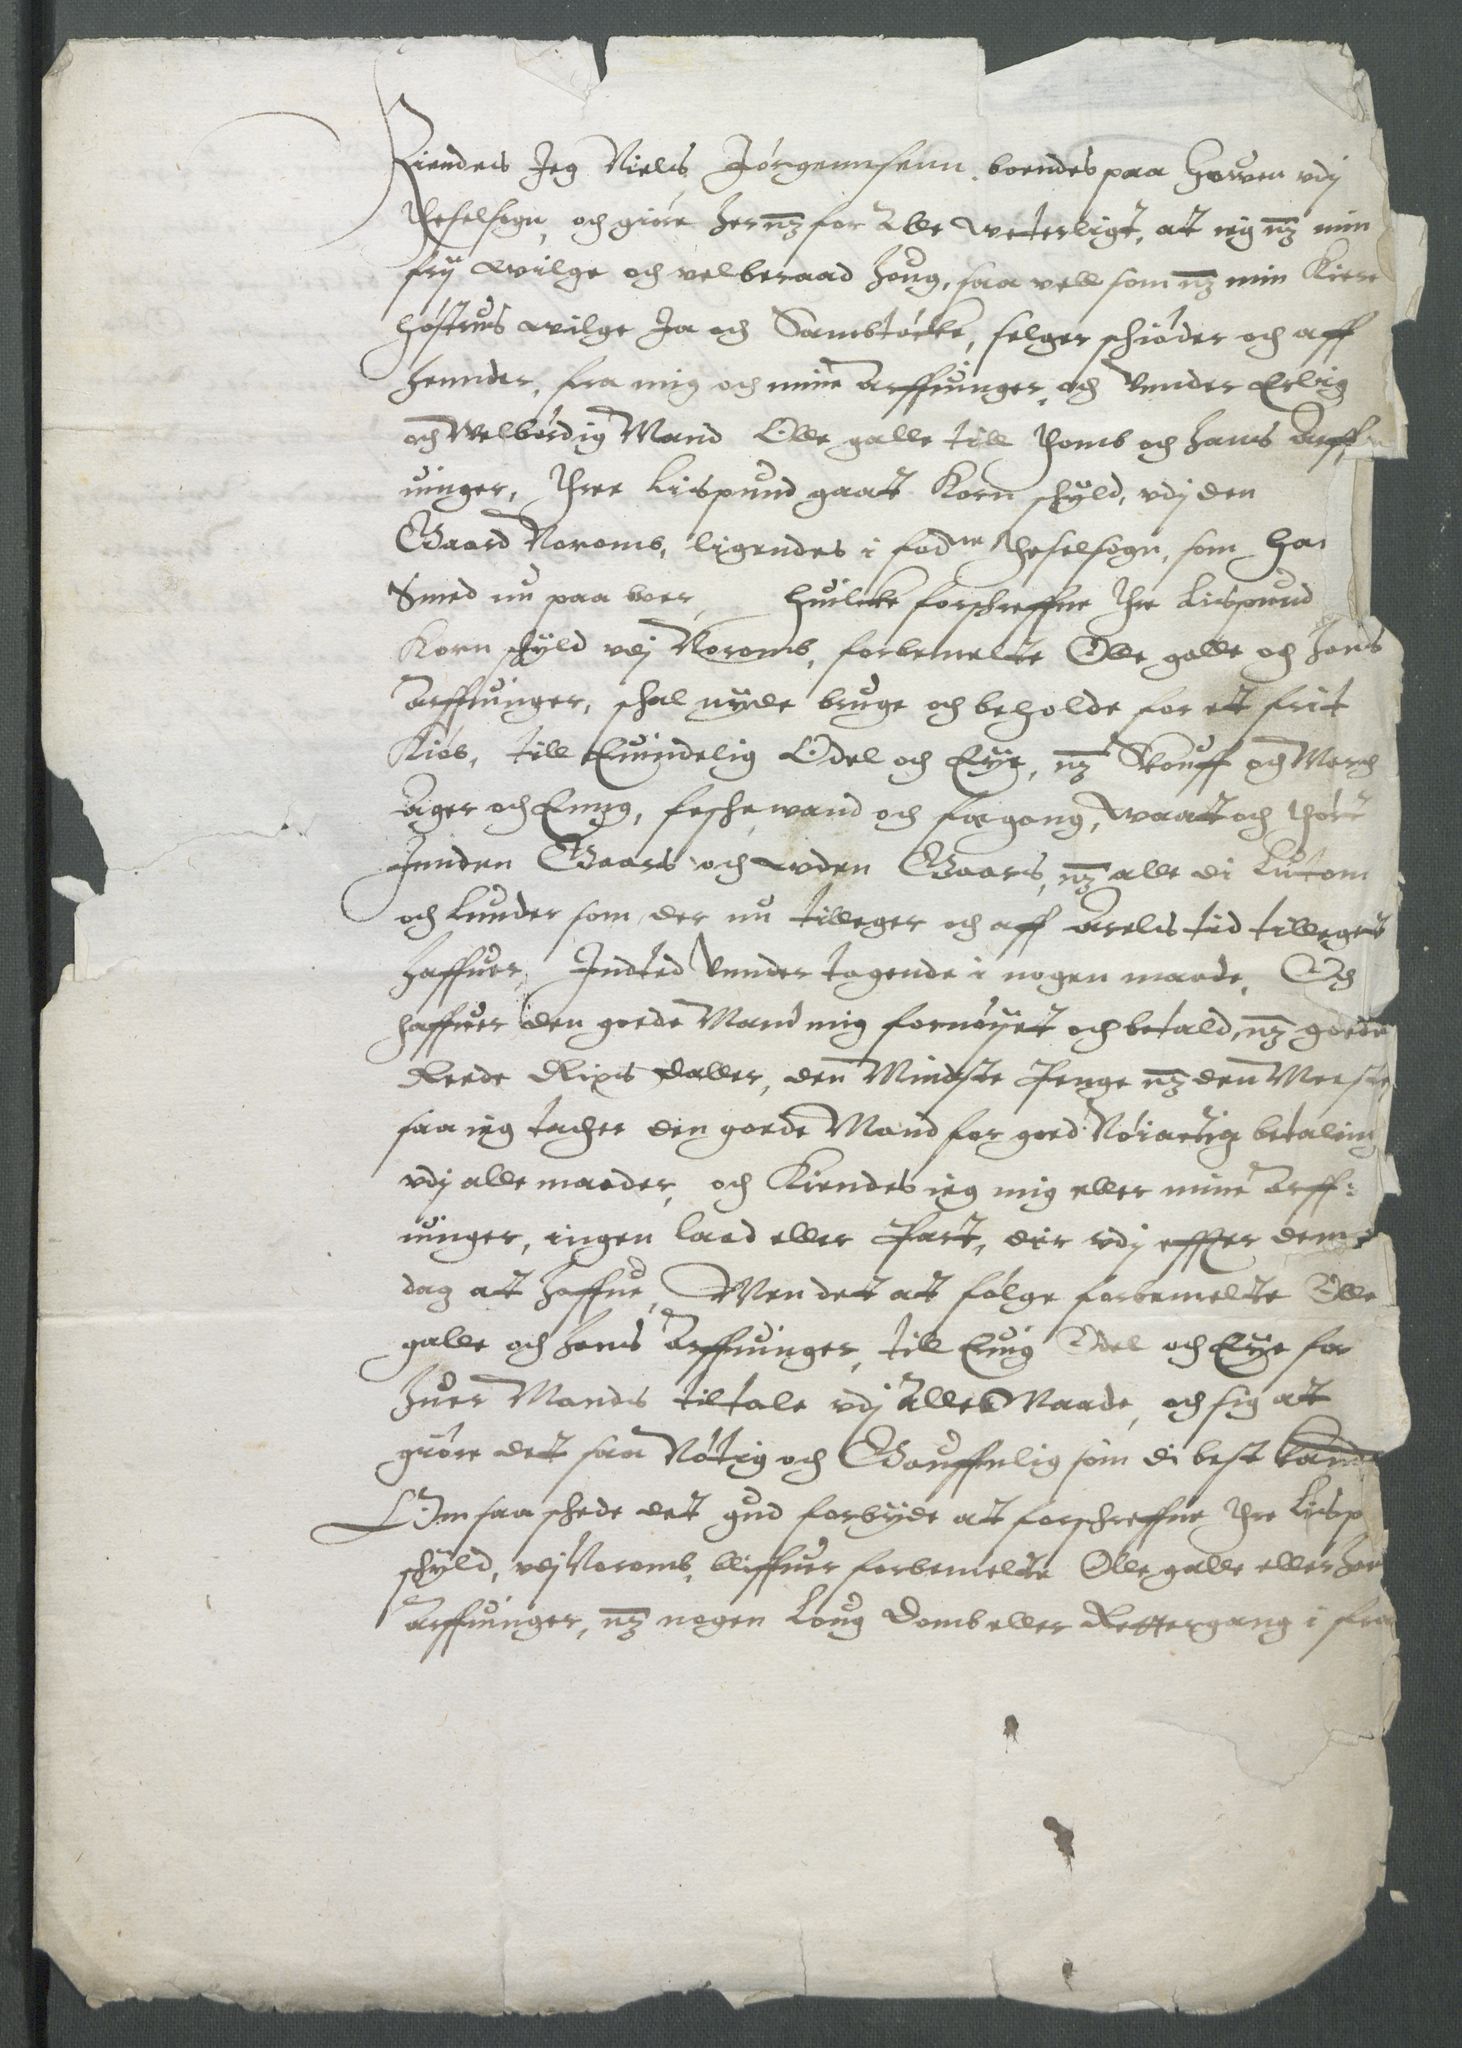 Kiendes Jeg Niels Jørgennsenn boendes paa Howen vdj
Neselsogn, och giøre her mz for alle witerligt, at ieg mz min
frij wilge och velberaad houg, saa vell som mz min Kiere
høstrus wilge Ja och Sambtøcke, selger schiøder och aff
hennder, fra mig och mine arffuinger, och vnder Erlig
och Welbørdig Mand Olle galle till Thomb och hans arff
uinger, Three Lispund gaat Korn schyld, vdj den
Gaard Noromb, ligendes i fodne Neselsogn, som Ha
Smed nu paa boer, huilcke forschreffne Thre Lispund
Korn schyld vdj Noromb, forbemelte Olle galle och hans
arffuinger, schal nyde bruge och beholde for et frit
Kiøb, till Euindelig Odel och Eye, mz Skouff och March
ager och Enng, feschewand och fægang, waat och thørt
Inden Gaars och uden Gaars, mz alle di Lutom
och Lunder som der nu tilleger och aff arelds tid tilleget
haffuer, Indted vnder tagende i nogen maade. Och
haffuer den goede Mand mig fornøyet och betald, mz goede
Reede Rixs daller, den Mindste Penge mz den Meeste
saa ieg tacher den goede Mand for goed Nøiactig betaling
vdj alle maader, och Kiendes ieg mig eller mine arff:
uinger, ingen laad eller Part, der vdj effter denne
dag at haffue, Men det at følge forbemelte Olle
galle och hans arffuinger, till Euig Odel och Eye for
huer Mands tiltale vdj alle Maade, och sig at
giøre det saa Nøtig och Gauffnlig som di best kand
Om saa schede det gud forbyde at forschreffne Thre Lisp
schyld, vdj Noromb, bliffuer forbemelte Olle galle eller han
arffuinger, mz nogen Loug Domb eller Rettergang i fra